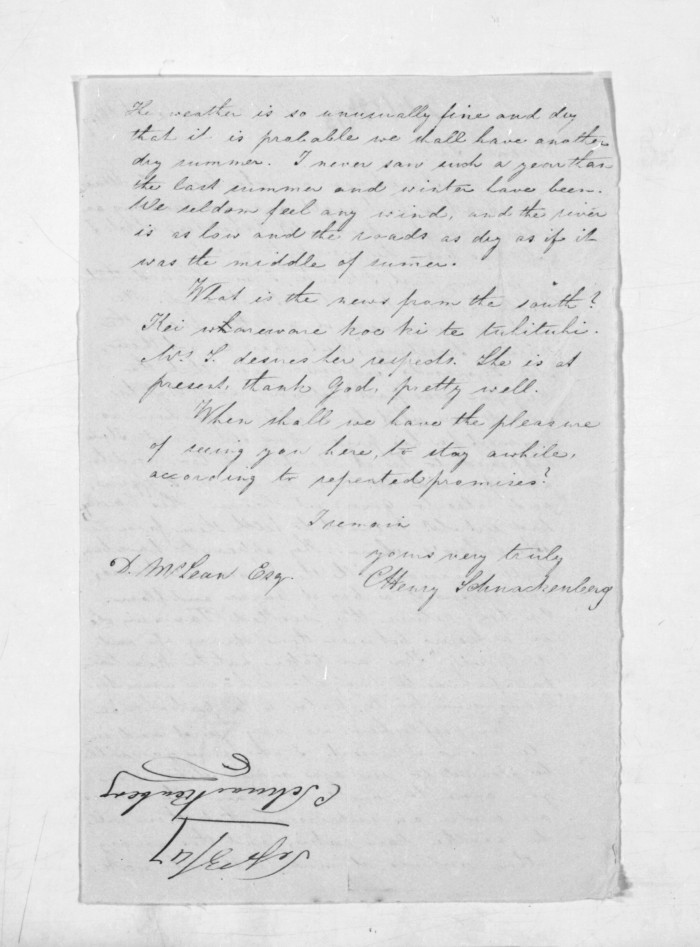 The weather is so unusually fine and dry
that it is probable we shall have another
dry summer. I never saw such a year than
the last summer and winter have been.
We seldom feel any wind, and the river
is as low and the roads as dry as if it
was the middle of sumer.
What is the news from the south?
Kei whareware koe ki te tuhituhi.
Mrs S. desires her respects. She is at
present, thank God, pretty well.
When shall we have the pleasure
of seeing you here, to stay awhile,
according to repeated promises?
I remain
yours very truly
D. McLean Esq.
CHenry Schnackenberg
C Schnackenberg
Sept 3/47